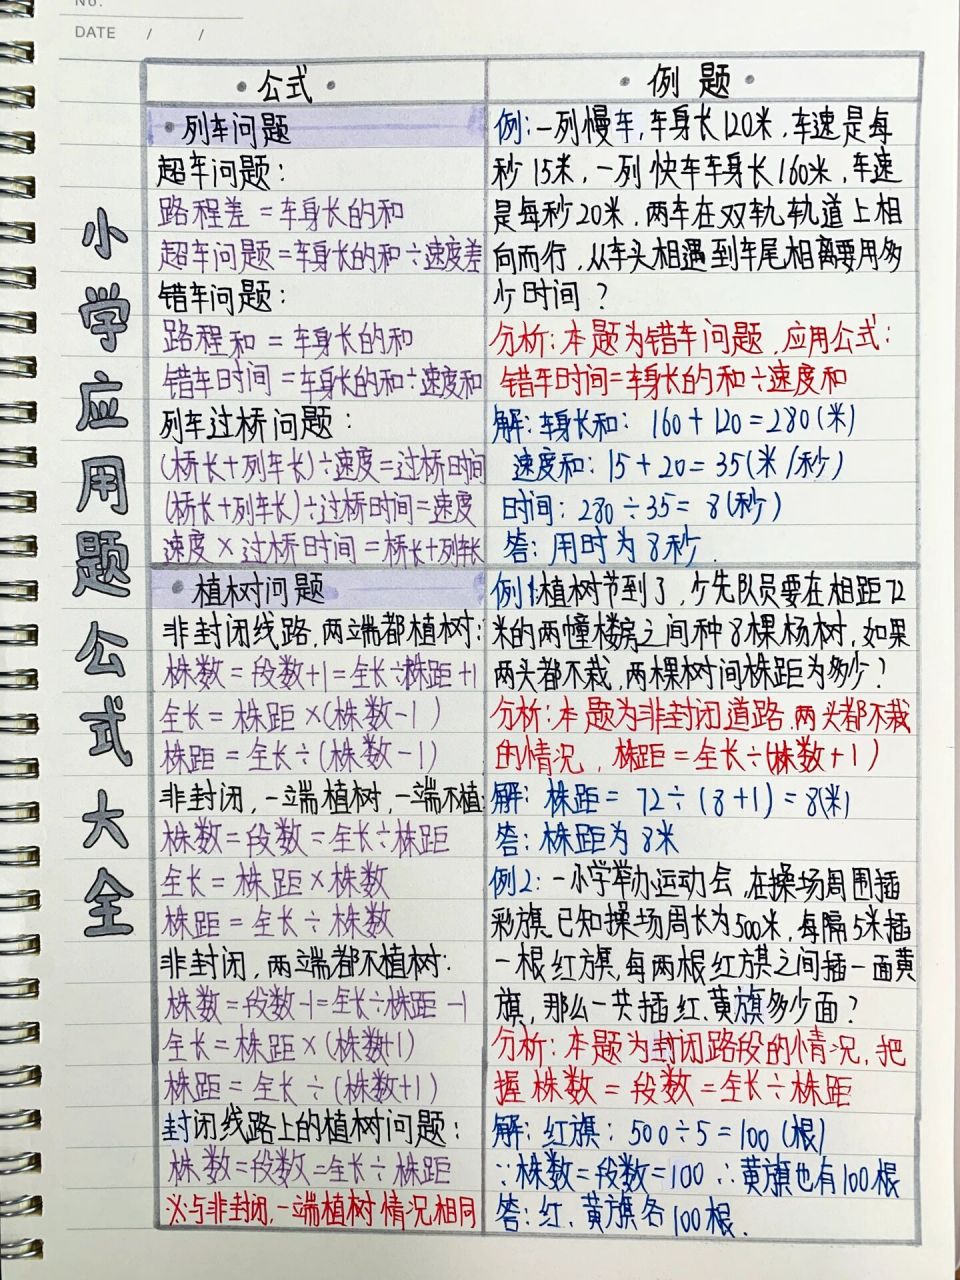 No.
DATE / /
小学应用题公式大全
·公式·
·列车问题
超车问题:
路程差=车身长的和
超车问题=车身长的和÷速度差
错车问题:
路程和=车身长的和
错车时间=车身长的和÷速度和
列车过桥问题:
(桥长+列车长)÷速度=过桥时间
(桥长+列车长)÷过桥时间=速度
速度×过桥时间=桥长+列车长
·植树问题
非封闭线路,两端都植树:
株数=段数+1=全长÷株距+1
全长=株距×(株数-1)
株距=全长÷(株数-1)
非封闭,一端植树,一端不植:
株数=段数=全长÷株距
全长=株距×株数
株距=全长÷株数
非封闭,两端都不植树:
株数=段数-1=全长÷株距-1
全长=株距×(株数+1)
株距=全长÷(株数+1)
封闭线路上的植树问题:
株数=段数=全长÷株距
※与非封闭,一端植树情况相同
·例题·
例:一列慢车,车身长120米,车速是每
秒15米,一列快车车身长160米,车速
是每秒20米,两车在双轨轨道上相
向而行,从车头相遇到车尾相离要用多
少时间?
分析:本题为错车问题,应用公式:
错车时间=车身长的和÷速度和
解:车身长和:160+120=280(米)
速度和:15+20=35(米/秒)
时间:280÷35=8(秒)
答:用时为8秒.
例1:植树节到了,少先队员要在相距72
米的两幢楼房之间种8棵杨树,如果
两头都不栽,两棵树间株距为多少?
分析:本题为非封闭道路,两头都不栽
的情况,株距=全长÷(株数+1)
解:株距=72÷(8+1)=8(米)
答:株距为8米
例2:一小学举办运动会,在操场周围插
彩旗,已知操场周长为500米,每隔5米插
一根红旗,每两根红旗之间插一面黄
旗,那么一共插红、黄旗多少面?
分析:本题为封闭路段的情况,把
握株数=段数=全长÷株距
解:红旗:500÷5=100(根)
∵株数=段数=100 ∴黄旗也有100根
答:红、黄旗各100根.